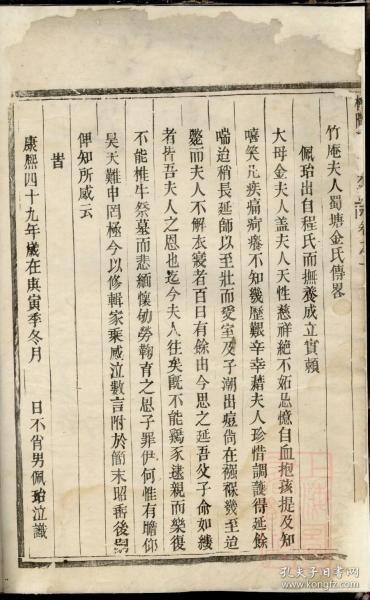 竹庵夫人蜀塘金氏傳畧
佩珆出自程氏而撫養成立實賴
大母金夫人蓋夫人天性慈祥絶不妬忌憶自血抱孩提及知
嘻笑凡疾痛疴癢不知幾歷艱辛幸藉夫人珍惜調護得延餘
喘迨稍長延師以至壯而愛室及子潮出痘尚在襁褓幾至迨
斃而夫人不解衣寢者百日有餘由今思之延吾父子命如縷
者皆吾夫人之恩也迄今夫人往矣旣不能鷄豕逮親而樂復
不能椎牛祭墓而悲緬懷劬勞鞠育之恩子罪伊何惟有瞻仰
昊天難申罔極今以修輯家乗感泣數言附於簡末昭畨後嗣
俾知所感云
旹
康熙四十九年歲在庚寅季冬月 日不肖男佩珆泣識
孔夫子旧书网